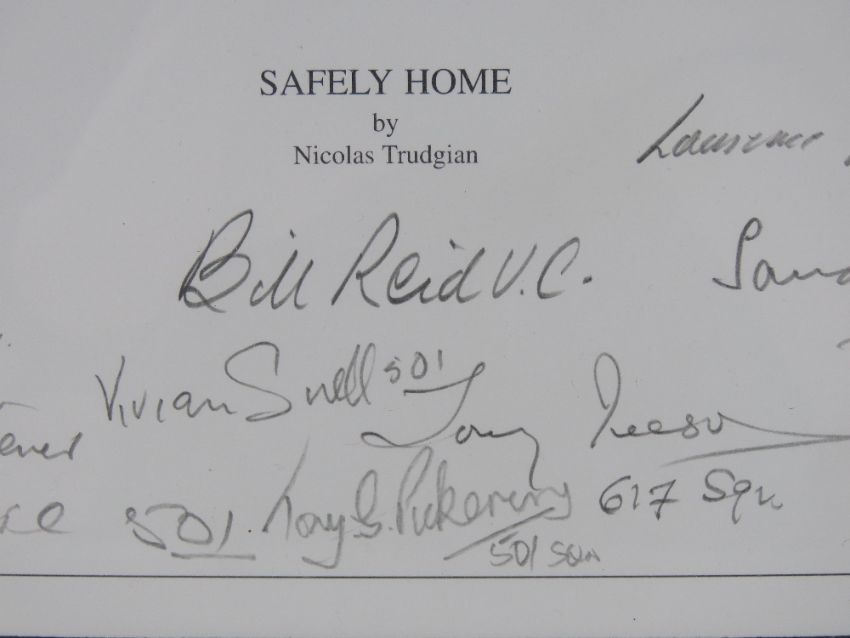 SAFELY HOME
by
Nicolas Trudgian
Laurence
Bill Reid V.C.
Vivian Snell 501
Tony Iveson
617 Sqn
501. Tony G. Pickering
501 Sqn